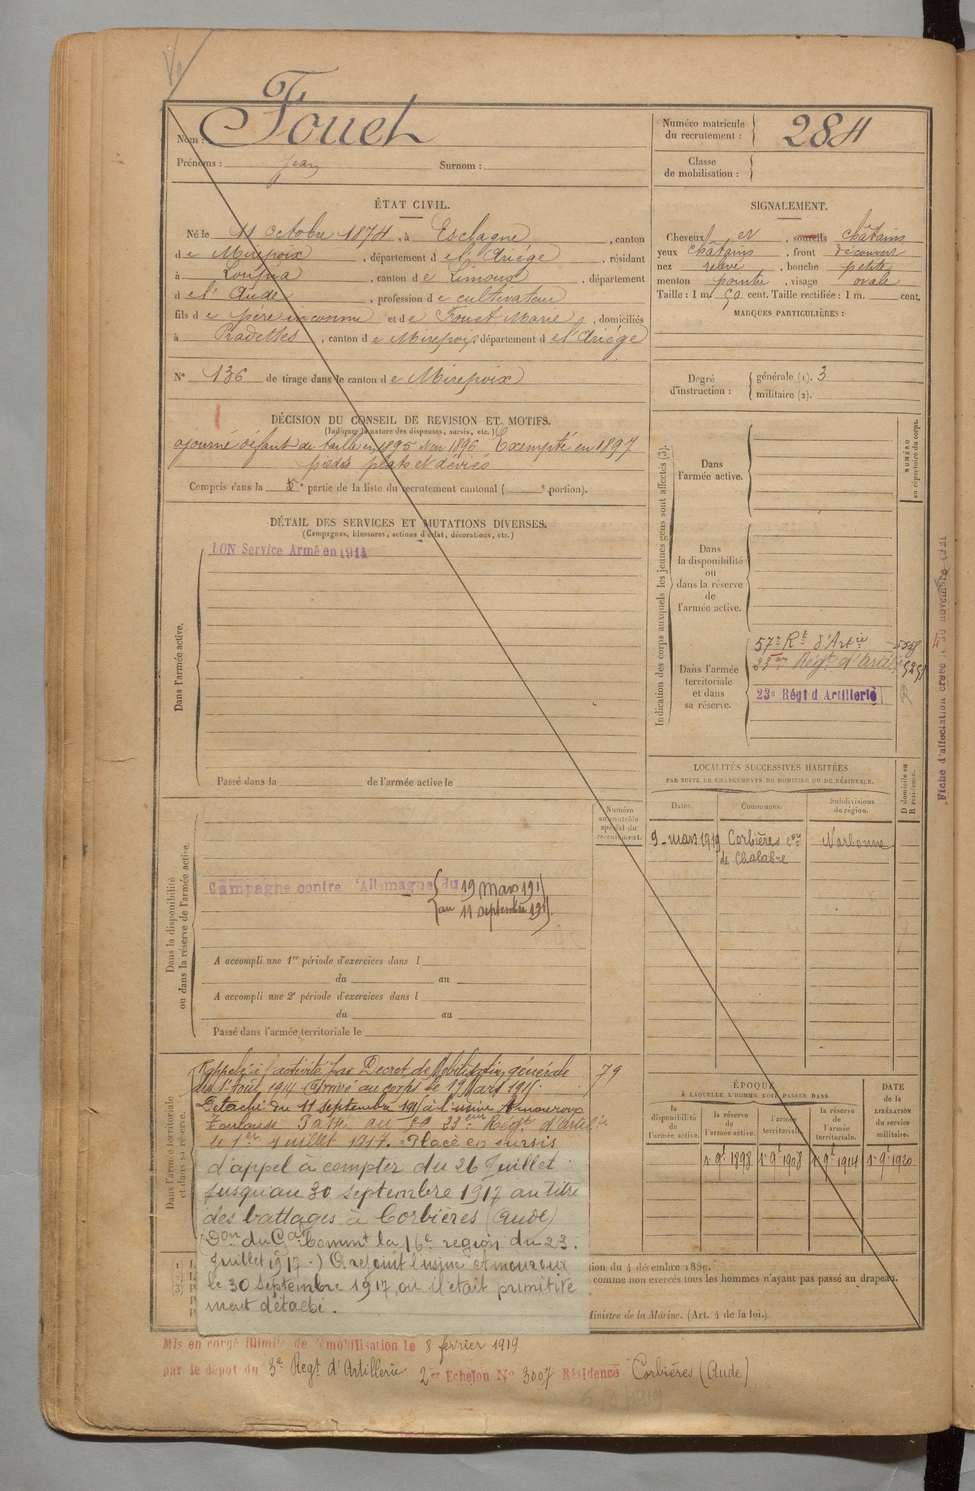 Nom : Fouet
Prénoms : Jean Surnom :
Numéro matricule du recrutement : 284
Classe de mobilisation :
ÉTAT CIVIL.
Né le 11 octobre 1874, à Esclagne, canton
de Mirepoix, département de l'Ariège, résidant
à , canton de Limoux, département
de l'Aude, profession de cultivateur
fils de père inconnu et de Fouet Marie, domiciliés
à Pradettes, canton de Mirepoix département de l'Ariège
N° 136 de tirage dans le canton de Mirepoix
DÉCISION DU CONSEIL DE REVISION ET MOTIFS.
(Indiquer la nature des dispenses, sursis, etc.)
ajourné défaut de taille en 1895 1896 Exempté en 1897
pieds plats et déviés
Compris dans la e partie de la liste du recrutement cantonal ( e portion).
DÉTAIL DES SERVICES ET MUTATIONS DIVERSES.
(Campagnes, blessures, actions d'éclat, décorations, etc.)
BON Service Armé en 1914
Dans l'armée active.
Passé dans la de l'armée active le
Numéro au contrôle spécial du recrutement.
Dans la disponibilité ou dans la réserve de l'armée active.
Campagne contre l'Allemagne du 19 Mars 191
au 11 septembre 191
A accompli une 1re période d'exercices dans l
du au
A accompli une 2e période d'exercices dans l
du au
Passé dans l'armée territoriale le
Dans l'armée territoriale et dans sa réserve.
Rappelé à l'activité par Décret de Mobilisation générale 79
du 1er Août 1914 Arrivé au corps le 19 Mars 191
Détaché du 11 septembre 191 à l'usine Amouroux
Toulouse Passé au 23ème Régt d'Artillie
le 1er Juillet 1917. Placé en sursis
d'appel à compter du 26 Juillet
jusqu'au 30 septembre 1917 au titre
des battages à Corbières (Aude)
(Don du Gal Commt la 16e région du 23.
Juillet 1917.) A rejoint l'usine Amouroux
le 30 Septembre 1917, où il était primitive
ment détaché.
SIGNALEMENT.
Cheveux et sourcils châtains
yeux châtains, front découvert
nez relevé, bouche petite
menton pointu, visage ovale
Taille : 1 m. 50 cent. Taille rectifiée : 1 m. cent.
MARQUES PARTICULIÈRES :
Degré d'instruction : générale (1). 3
militaire (2).
Indication des corps auxquels les jeunes gens sont affectés (3).
NUMÉRO au répertoire du corps.
Dans l'armée active.
Dans la disponibilité ou dans la réserve de l'armée active.
Dans l'armée territoriale et dans sa réserve.
57e Rt d'Artie
23me Régt d'Art
23e Régt d Artillerie
R
Fiche d'affectation créée le 30 novembre 1921
LOCALITÉS SUCCESSIVES HABITÉES
PAR SUITE DE CHANGEMENTS DE DOMICILE OU DE RÉSIDENCE.
Dates. Communes. Subdivisions de région. D domicile ou R résidence.
9 mars 1919 Corbières con de Chalabre Narbonne
ÉPOQUE
À LAQUELLE L'HOMME DOIT PASSER DANS
la disponibilité de l'armée active. la réserve de l'armée active. l'armée territoriale. la réserve de l'armée territoriale.
DATE de la LIBÉRATION du service militaire.
1er 9bre 1898 1er 9bre 1908 1er 9bre 1914 1er 9bre 1920
tion du 4 décembre 1889.
comme non exercés tous les hommes n'ayant pas passé au drapeau.
Ministre de la Marine. (Art. 4 de la loi.)
Mis en congé illimité de démobilisation le 8 février 1919
par le dépôt du 3e Régt d'Artillerie 2e Echelon N° 3007 Résidence Corbières (Aude)